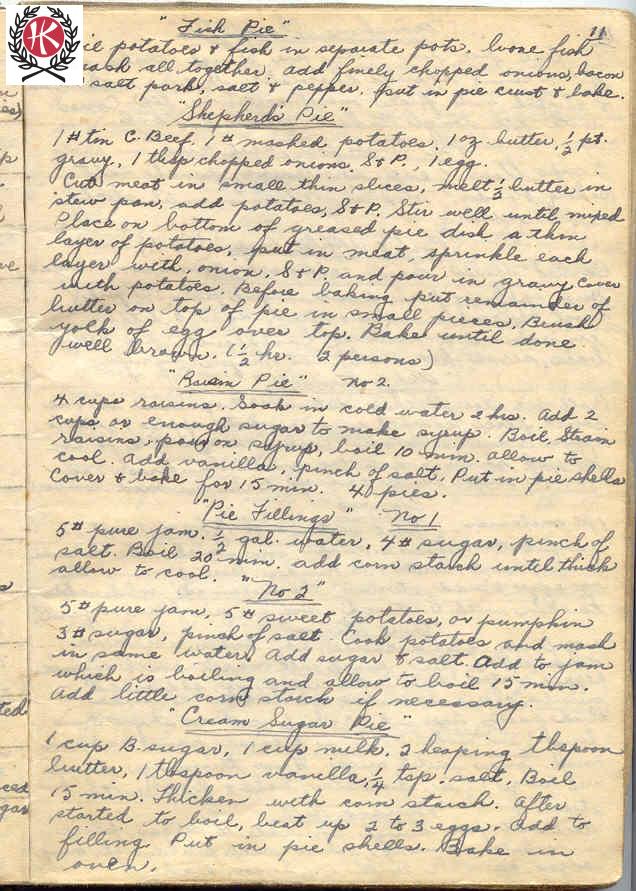 11
"Fish Pie"
potatoes & fish in separate pots. bone fish
mash all together. add finely chopped onions, bacon
salt pork, salt & pepper. put in pie crust & bake.
"Shepherd's Pie"
1# tin C. Beef. 1# mashed potatoes. 1 oz. butter, ½ pt.
gravy. 1 tbsp chopped onions. S & P., 1 egg.
Cut meat in small thin slices, melt ½ butter in
stew pan, add potatoes, S & P. Stir well until mixed
Place on bottom of greased pie dish a thin
layer of potatoes, put in meat, sprinkle each
layer with onion, S & P, and pour in gravy cover
with potatoes. Before baking put remainder of
butter on top of pie in small pieces. Brush
yolk of egg over top. Bake until done
well brown. (½ hr. 2 persons)
"Raisin Pie" No 2.
4 cups raisins. Soak in cold water 2 hrs. Add 2
cups or enough sugar to make syrup. Boil, Steam
raisins, pour on syrup, boil 10 min. allow to
cool. Add vanilla, pinch of salt. Put in pie shells
Cover & bake for 15 min. 4 pies.
"Pie Fillings" No 1
5# pure jam. ½ gal. water, 4# sugar, pinch of
salt. Boil 20 min. add corn starch until thick
allow to cool.
"No 2"
5# pure jam, 5# sweet potatoes, or pumpkin
3# sugar, pinch of salt. Cook potatoes and mash
in same water. Add sugar & salt. Add to jam
which is boiling and allow to boil 15 min.
Add little corn starch if necessary.
"Cream Sugar Pie"
1 cup B. sugar, 1 cup milk. 2 heaping tbspoon
butter, 1 tbspoon vanilla, ¼ tsp. salt, Boil
15 min. Thicken with corn starch. After
started to boil, beat up 2 to 3 eggs. Add to
filling Put in pie shells. Bake in
oven.